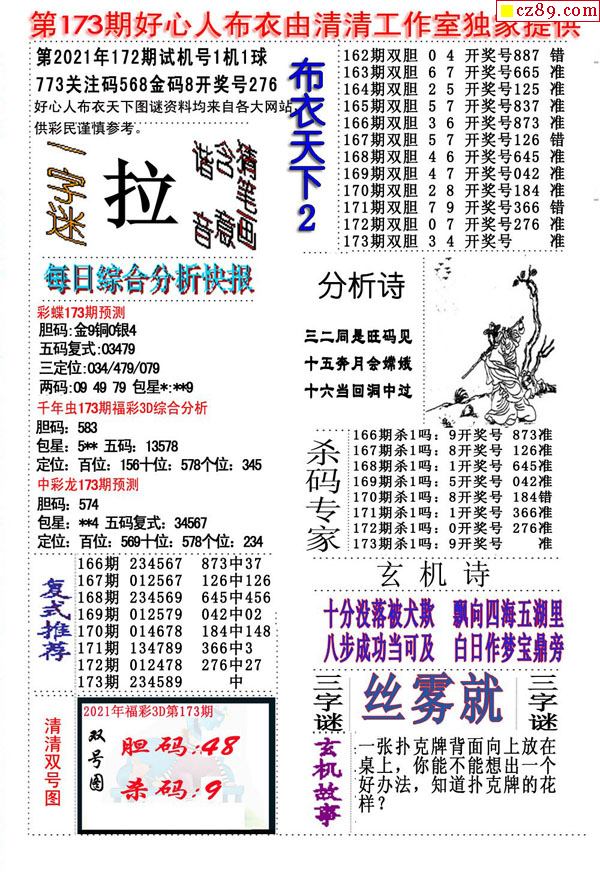 cz89.com
第173期好心人布衣由清清工作室独家提供
第2021年172期试机号1机1球
773关注码568金码8开奖号276
好心人布衣天下图谜资料均来自各大网站,
供彩民谨慎参考。
一字迷
拉
谐音
含意
猜笔画
布衣天下2
162期双胆 0 4 开奖号887 错
163期双胆 6 7 开奖号665 准
164期双胆 2 5 开奖号125 准
165期双胆 5 7 开奖号837 准
166期双胆 3 6 开奖号873 准
167期双胆 5 7 开奖号126 错
168期双胆 4 6 开奖号645 准
169期双胆 4 7 开奖号042 准
170期双胆 2 8 开奖号184 准
171期双胆 7 9 开奖号366 错
172期双胆 0 7 开奖号276 准
173期双胆 3 4 开奖号 准
每日综合分析快报
彩蝶173期预测
胆码:金9铜0银4
五码复式:03479
三定位:034/479/079
两码:09 49 79 包星*:**9
千年虫173期福彩3D综合分析
胆码: 583
包星: 5** 五码: 13578
定位: 百位: 156十位: 578个位: 345
中彩龙173期预测
胆码: 574
包星: **4 五码复式: 34567
定位: 百位: 569十位: 578个位: 234
分析诗
三二同是旺码见
十五奔月会嫦娥
十六当回洞中过
杀码专家
166期杀1吗: 9开奖号 873准
167期杀1吗: 8开奖号 126准
168期杀1吗: 1开奖号 645准
169期杀1吗: 5开奖号 042准
170期杀1吗: 8开奖号 184错
171期杀1吗: 1开奖号 366准
172期杀1吗: 0开奖号 276准
173期杀1吗: 9开奖号 准
复式推荐
166期 234567 873中37
167期 012567 126中126
168期 234569 645中456
169期 012579 042中02
170期 014678 184中148
171期 134789 366中3
172期 012478 276中27
173期 234589 中
玄机诗
十分没落被犬欺 飘向四海五湖里
八步成功当可及 白日作梦宝鼎旁
三字谜
丝雾就
三字谜
清清双号图
2021年福彩3D第173期
双号图
胆码:48
杀码:9
玄机故事
一张扑克牌背面向上放在
桌上，你能不能想出一个
好办法，知道扑克牌的花
样?